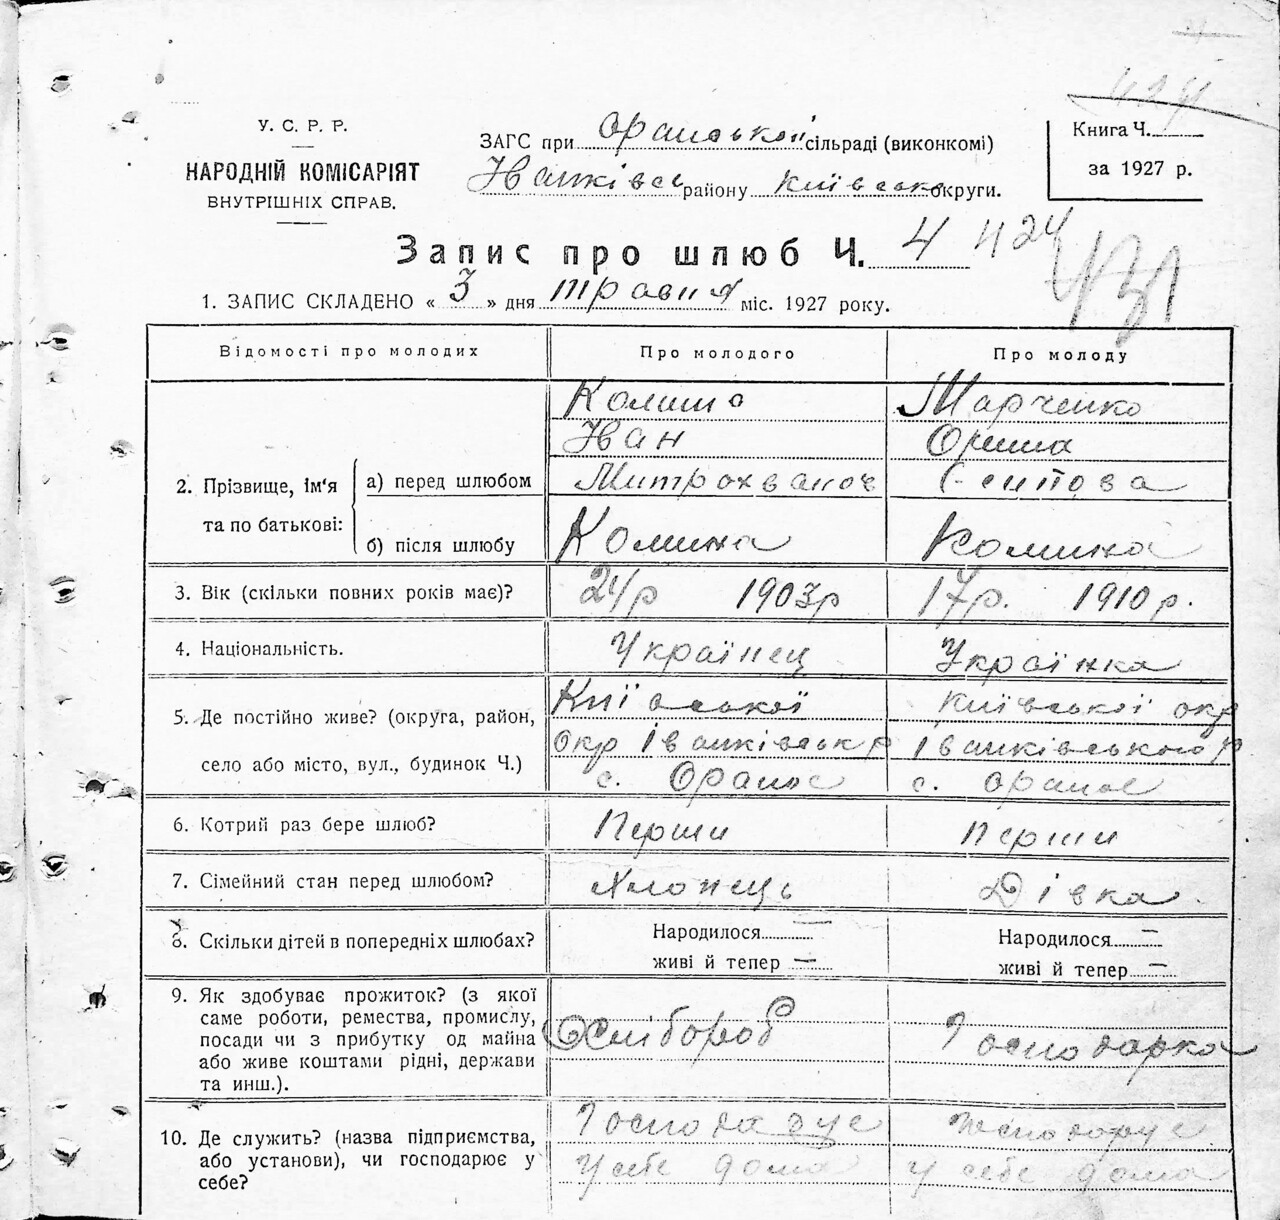 У. С. Р. Р.
НАРОДНІЙ КОМІСАРІЯТ
ВНУТРІШНІХ СПРАВ.
ЗАГС при Оранській сільраді (виконкомі)
Іванківсь району Київсько округи.
Книга Ч.
за 1927 р.
424
Запис про шлюб Ч. 4
424
431
1. ЗАПИС СКЛАДЕНО « 3 » дня травня міс. 1927 року.
Відомості про молодих Про молодого Про молоду
2. Прізвище, ім'я та по батькові:
а) перед шлюбом
Марченко
Іван
Митрохванов
б) після шлюбу
Комина Комина
3. Вік (скільки повних років має)? 24р 1903р 17р. 1910 р.
4. Національність. Українец Українка
5. Де постійно живе? (округа, район,
село або місто, вул., будинок Ч.)
Київської Київської окр
окр Іванківськ р Іванківського р
с. Оране с. Оране
6. Котрий раз бере шлюб? Перши Перши
7. Сімейний стан перед шлюбом? Хлопець Дівка
8. Скільки дітей в попередніх шлюбах? Народилося — Народилося —
живі й тепер — живі й тепер —
9. Як здобуває прожиток? (з якої
саме роботи, ремества, промислу,
посади чи з прибутку од майна
або живе коштами рідні, держави
та инш.).
Хлібороб Господарка
10. Де служить? (назва підприємства,
або установи), чи господарює у
себе?
Господарує Господарує
у себе дома у себе дома